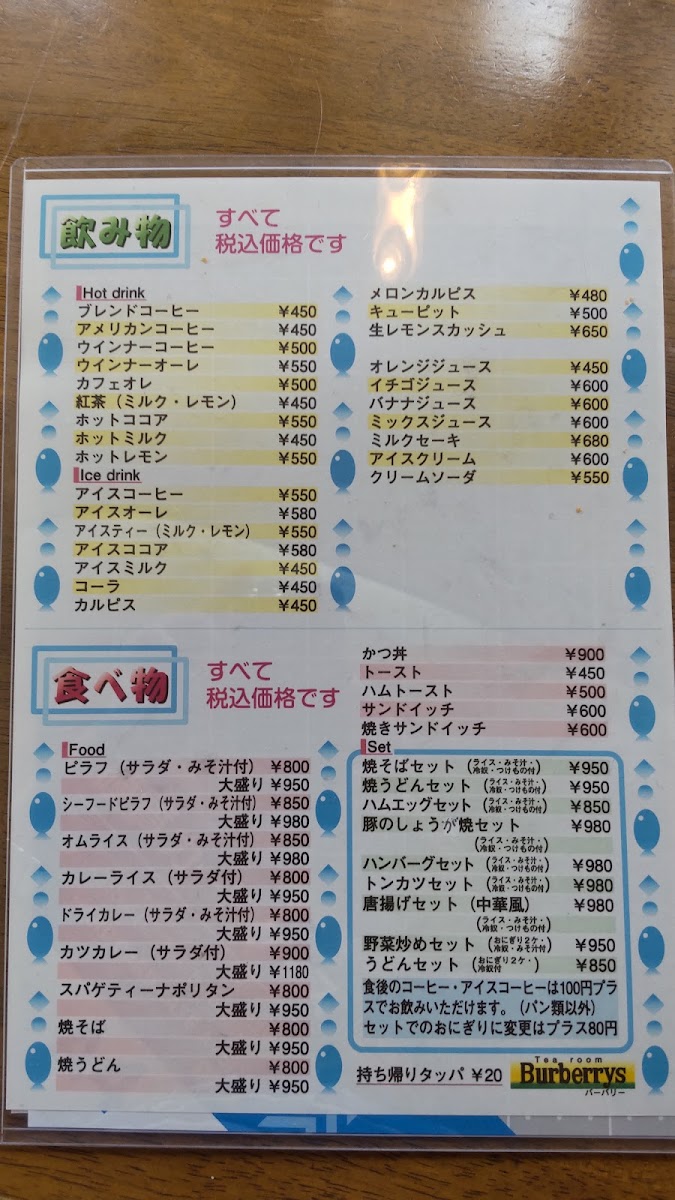 飲み物
すべて
税込価格です
Hot drink
ブレンドコーヒー ¥450
アメリカンコーヒー ¥450
ウインナーコーヒー ¥500
ウインナーオーレ ¥550
カフェオレ ¥500
紅茶（ミルク・レモン） ¥450
ホットココア ¥550
ホットミルク ¥450
ホットレモン ¥550
Ice drink
アイスコーヒー ¥550
アイスオーレ ¥580
アイスティー（ミルク・レモン） ¥550
アイスココア ¥580
アイスミルク ¥450
コーラ ¥450
カルピス ¥450
メロンカルピス ¥480
キューピット ¥500
生レモンスカッシュ ¥650
オレンジジュース ¥450
イチゴジュース ¥600
バナナジュース ¥600
ミックスジュース ¥600
ミルクセーキ ¥680
アイスクリーム ¥600
クリームソーダ ¥550
食べ物
すべて
税込価格です
Food
ピラフ（サラダ・みそ汁付） ¥800
大盛り ¥950
シーフードピラフ（サラダ・みそ汁付） ¥850
大盛り ¥980
オムライス（サラダ・みそ汁付） ¥850
大盛り ¥980
カレーライス（サラダ付） ¥800
大盛り ¥950
ドライカレー（サラダ・みそ汁付） ¥800
大盛り ¥950
カツカレー（サラダ付） ¥900
大盛り ¥1180
スパゲティーナポリタン ¥800
大盛り ¥950
焼そば ¥800
大盛り ¥950
焼うどん ¥800
大盛り ¥950
かつ丼 ¥900
トースト ¥450
ハムトースト ¥500
サンドイッチ ¥600
焼きサンドイッチ ¥600
Set
焼そばセット（ライス・みそ汁・冷奴・つけもの付） ¥950
焼うどんセット（ライス・みそ汁・冷奴・つけもの付） ¥950
ハムエッグセット（ライス・みそ汁・冷奴・つけもの付） ¥850
豚のしょうが焼セット ¥980
（ライス・みそ汁・冷奴・つけもの付）
ハンバーグセット（ライス・みそ汁・冷奴・つけもの付） ¥980
トンカツセット（ライス・みそ汁・冷奴・つけもの付） ¥980
唐揚げセット（中華風） ¥980
（ライス・みそ汁・冷奴・つけもの付）
野菜炒めセット（おにぎり2ケ・冷奴・みそ汁付） ¥950
うどんセット（おにぎり2ケ・冷奴付） ¥850
食後のコーヒー・アイスコーヒーは100円プラ
スでお飲みいただけます。（パン類以外）
セットでのおにぎりに変更はプラス80円
持ち帰りタッパ ¥20
Tea room
Burberrys
バーバリー